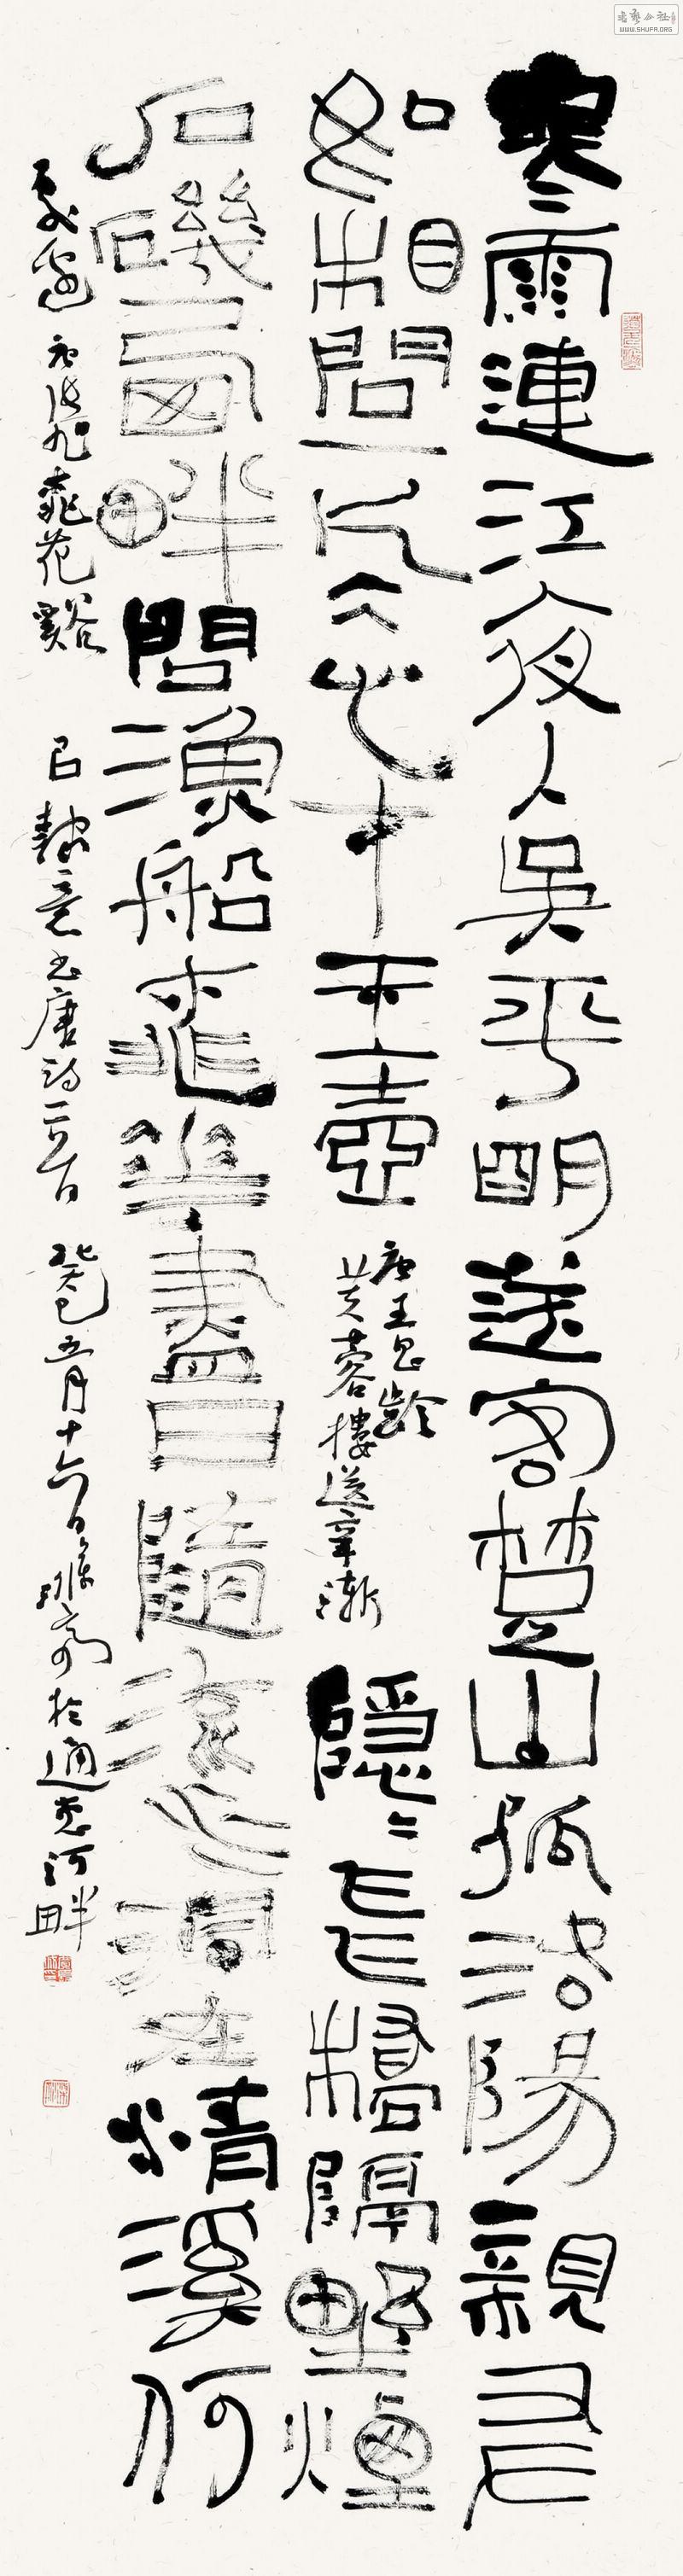 寒雨連江夜入吳平明送客楚山孤洛陽親友
如相問一片冰心在玉壺
唐王昌齡
芙蓉樓送辛漸
隱〻飛橋隔野煙
石磯西畔問漁船桃華盡日隨流水洞在清溪何
處邊 唐張旭桃花谿 以隸意書唐詩二首 癸巳五月十六日 於通惠河畔
书艺公社
WWW.SHUFA.ORG